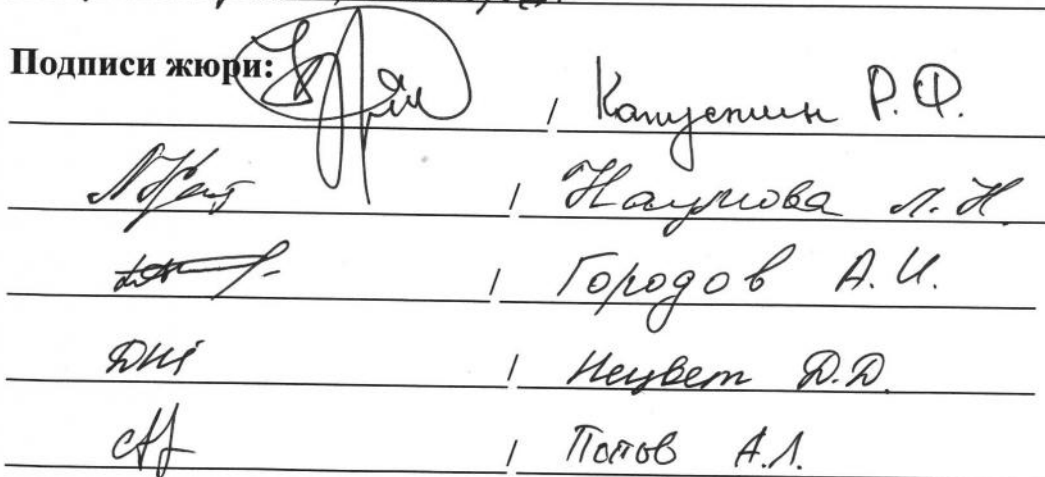 Подписи жюри:
/ Капустин Р. Ф.
/ Наумова Л. Н.
/ Городов А. И.
/ Нецвет Д.Д.
/ Попов А.Л.